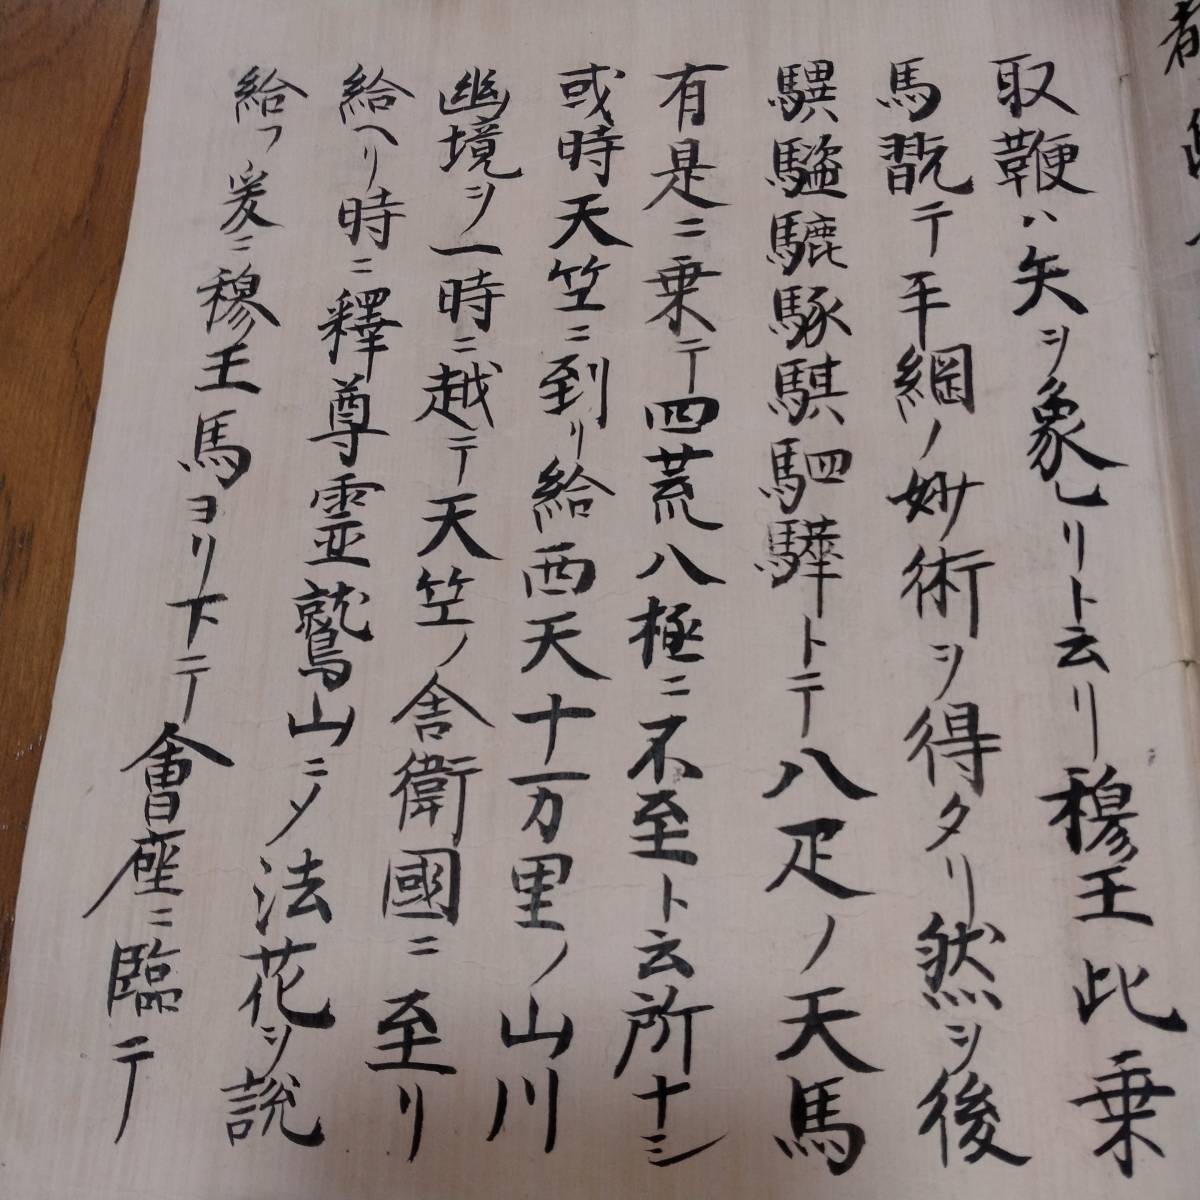 取鞭ハ矢ヲ象レリト云リ穆王此乗
馬翫テ手綱ノ妙術ヲ得タリ然シ後
騏驎驢騄騏駟驊トテ八疋ノ天馬
有是ニ乗テ四荒八極ニ不至ト云所ナシ
或時天竺ニ到リ給西天十一万里ノ山川
幽境ヲ一時ニ越テ天竺ノ舎衛國ニ至リ
給ヘリ時ニ釋尊霊鷲山ニソ法花ヲ説
給フ爰ニ穆王馬ヨリ下テ會座ニ臨テ